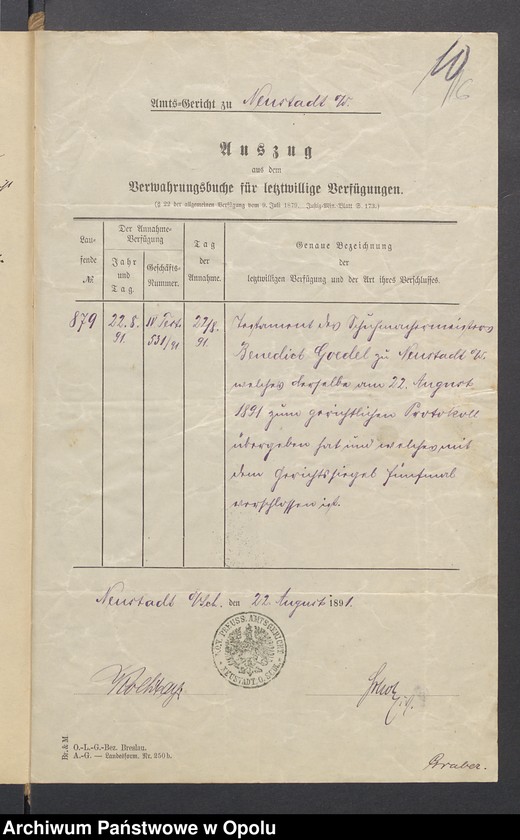 10
Amts-Gericht zu Neustadt O/S.
Auszug
aus dem
Verwahrungsbuche für letztwillige Verfügungen.
(§ 22 der allgemeinen Verfügung vom 9. Juli 1879. Justiz-Min.-Blatt S. 173.)
Lau-
fende
№
Der Annahme-
Verfügung
Jahr
und
Tag.
Geschäfts-
Nummer.
Tag
der
Annahme.
Genaue Bezeichnung
der
letztwilligen Verfügung und der Art ihres Verschlusses.
879 22.8. IV Test. 22/8. Testament des Schuhmachermeisters
91. 531/91 91. Benedict Goedel zu Neustadt O/S.
welches derselbe am 22. August
1891 zum gerichtlichen Protokoll
übergeben hat und welches mit
dem Gerichtssiegel fünfmal
verschlossen ist.
Neustadt O/Sch. den 22. August 1891.
KÖN. PREUSS. AMTSGERICHT
NEUSTADT, O. SCHL.
Br. & M
O.-L.-G.-Bez. Breslau.
A.-G. — Landesform. Nr. 250 b.
Archiwum Państwowe w Opolu